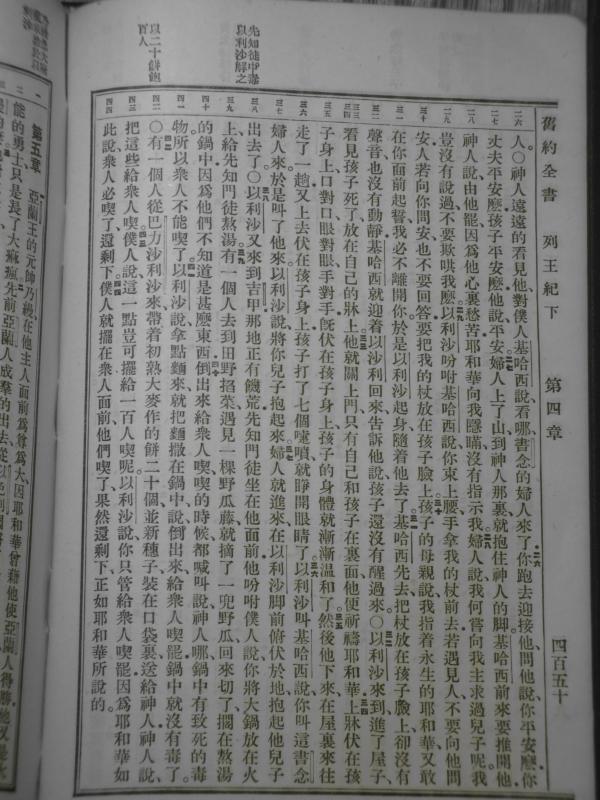 舊約全書 列王紀下 第四章 四百五十
人○神人遠遠的看見他對僕人基哈西說看哪書念的婦人來了你跑去迎接他問他說你平安麽你
丈夫平安麽孩子平安麽他說平安婦人上了山到神人那裏就抱住神人的脚基哈西前來要推開他
神人說由他罷因爲他心裏愁苦耶和華向我隱瞞沒有指示我婦人說我何嘗向我主求過兒子呢我
豈沒有說過不要欺哄我麽以利沙吩咐基哈西說你束上腰手拿我的杖前去若遇見人不要向他問
安人若向你問安也不要回答要把我的杖放在孩子臉上孩子的母親說我指着永生的耶和華又敢
在你面前起誓我必不離開你於是以利沙起身隨着他去了基哈西先去把杖放在孩子臉上卻沒有
聲音也沒有動靜基哈西就迎着以利沙回來告訴他說孩子還沒有醒過來○以利沙來到進了屋子
看見孩子死了放在自己的牀上他就關上門只有自己和孩子在裏面他便祈禱耶和華上牀伏在孩
子身上口對口眼對眼手對手旣伏在孩子身上孩子的身體就漸漸溫和了然後他下來在屋裏來往
走了一趟又上去伏在孩子身上孩子打了七個嚏噴就睜開眼睛了以利沙叫基哈西說你叫這書念
婦人來於是叫了他來以利沙說將你兒子抱起來婦人就進來在以利沙脚前俯伏於地抱起他兒子
出去了○以利沙又來到吉甲那地正有饑荒先知門徒坐在他面前他吩咐僕人說你將大鍋放在火
上給先知門徒熬湯有一個人去到田野掐菜遇見一棵野瓜藤就摘了一兜野瓜回來切了擱在熬湯
的鍋中因爲他們不知道是甚麽東西倒出來給衆人喫喫的時候都喊叫說神人哪鍋中有致死的毒
物所以衆人不能喫了以利沙說拿點麵來就把麵撒在鍋中說倒出來給衆人喫罷鍋中就沒有毒了
○有一個人從巴力沙利沙來帶着初熟大麥作的餅二十個並新穗子裝在口袋裏送給神人神人說
把這些給衆人喫僕人說這一點豈可擺給一百人喫呢以利沙說你只管給衆人喫罷因爲耶和華如
此說衆人必喫了還剩下僕人就擺在衆人面前他們喫了果然還剩下正如耶和華所說的
第五章 亞蘭王的元帥乃縵在他主人面前爲尊爲大因耶和華曾藉他使亞蘭人得勝他又是大
能的勇士只是長了大痲瘋先前亞蘭人成羣的出去從以色列國
先知徒中毒
以利沙解之
以二十餅飽
百人